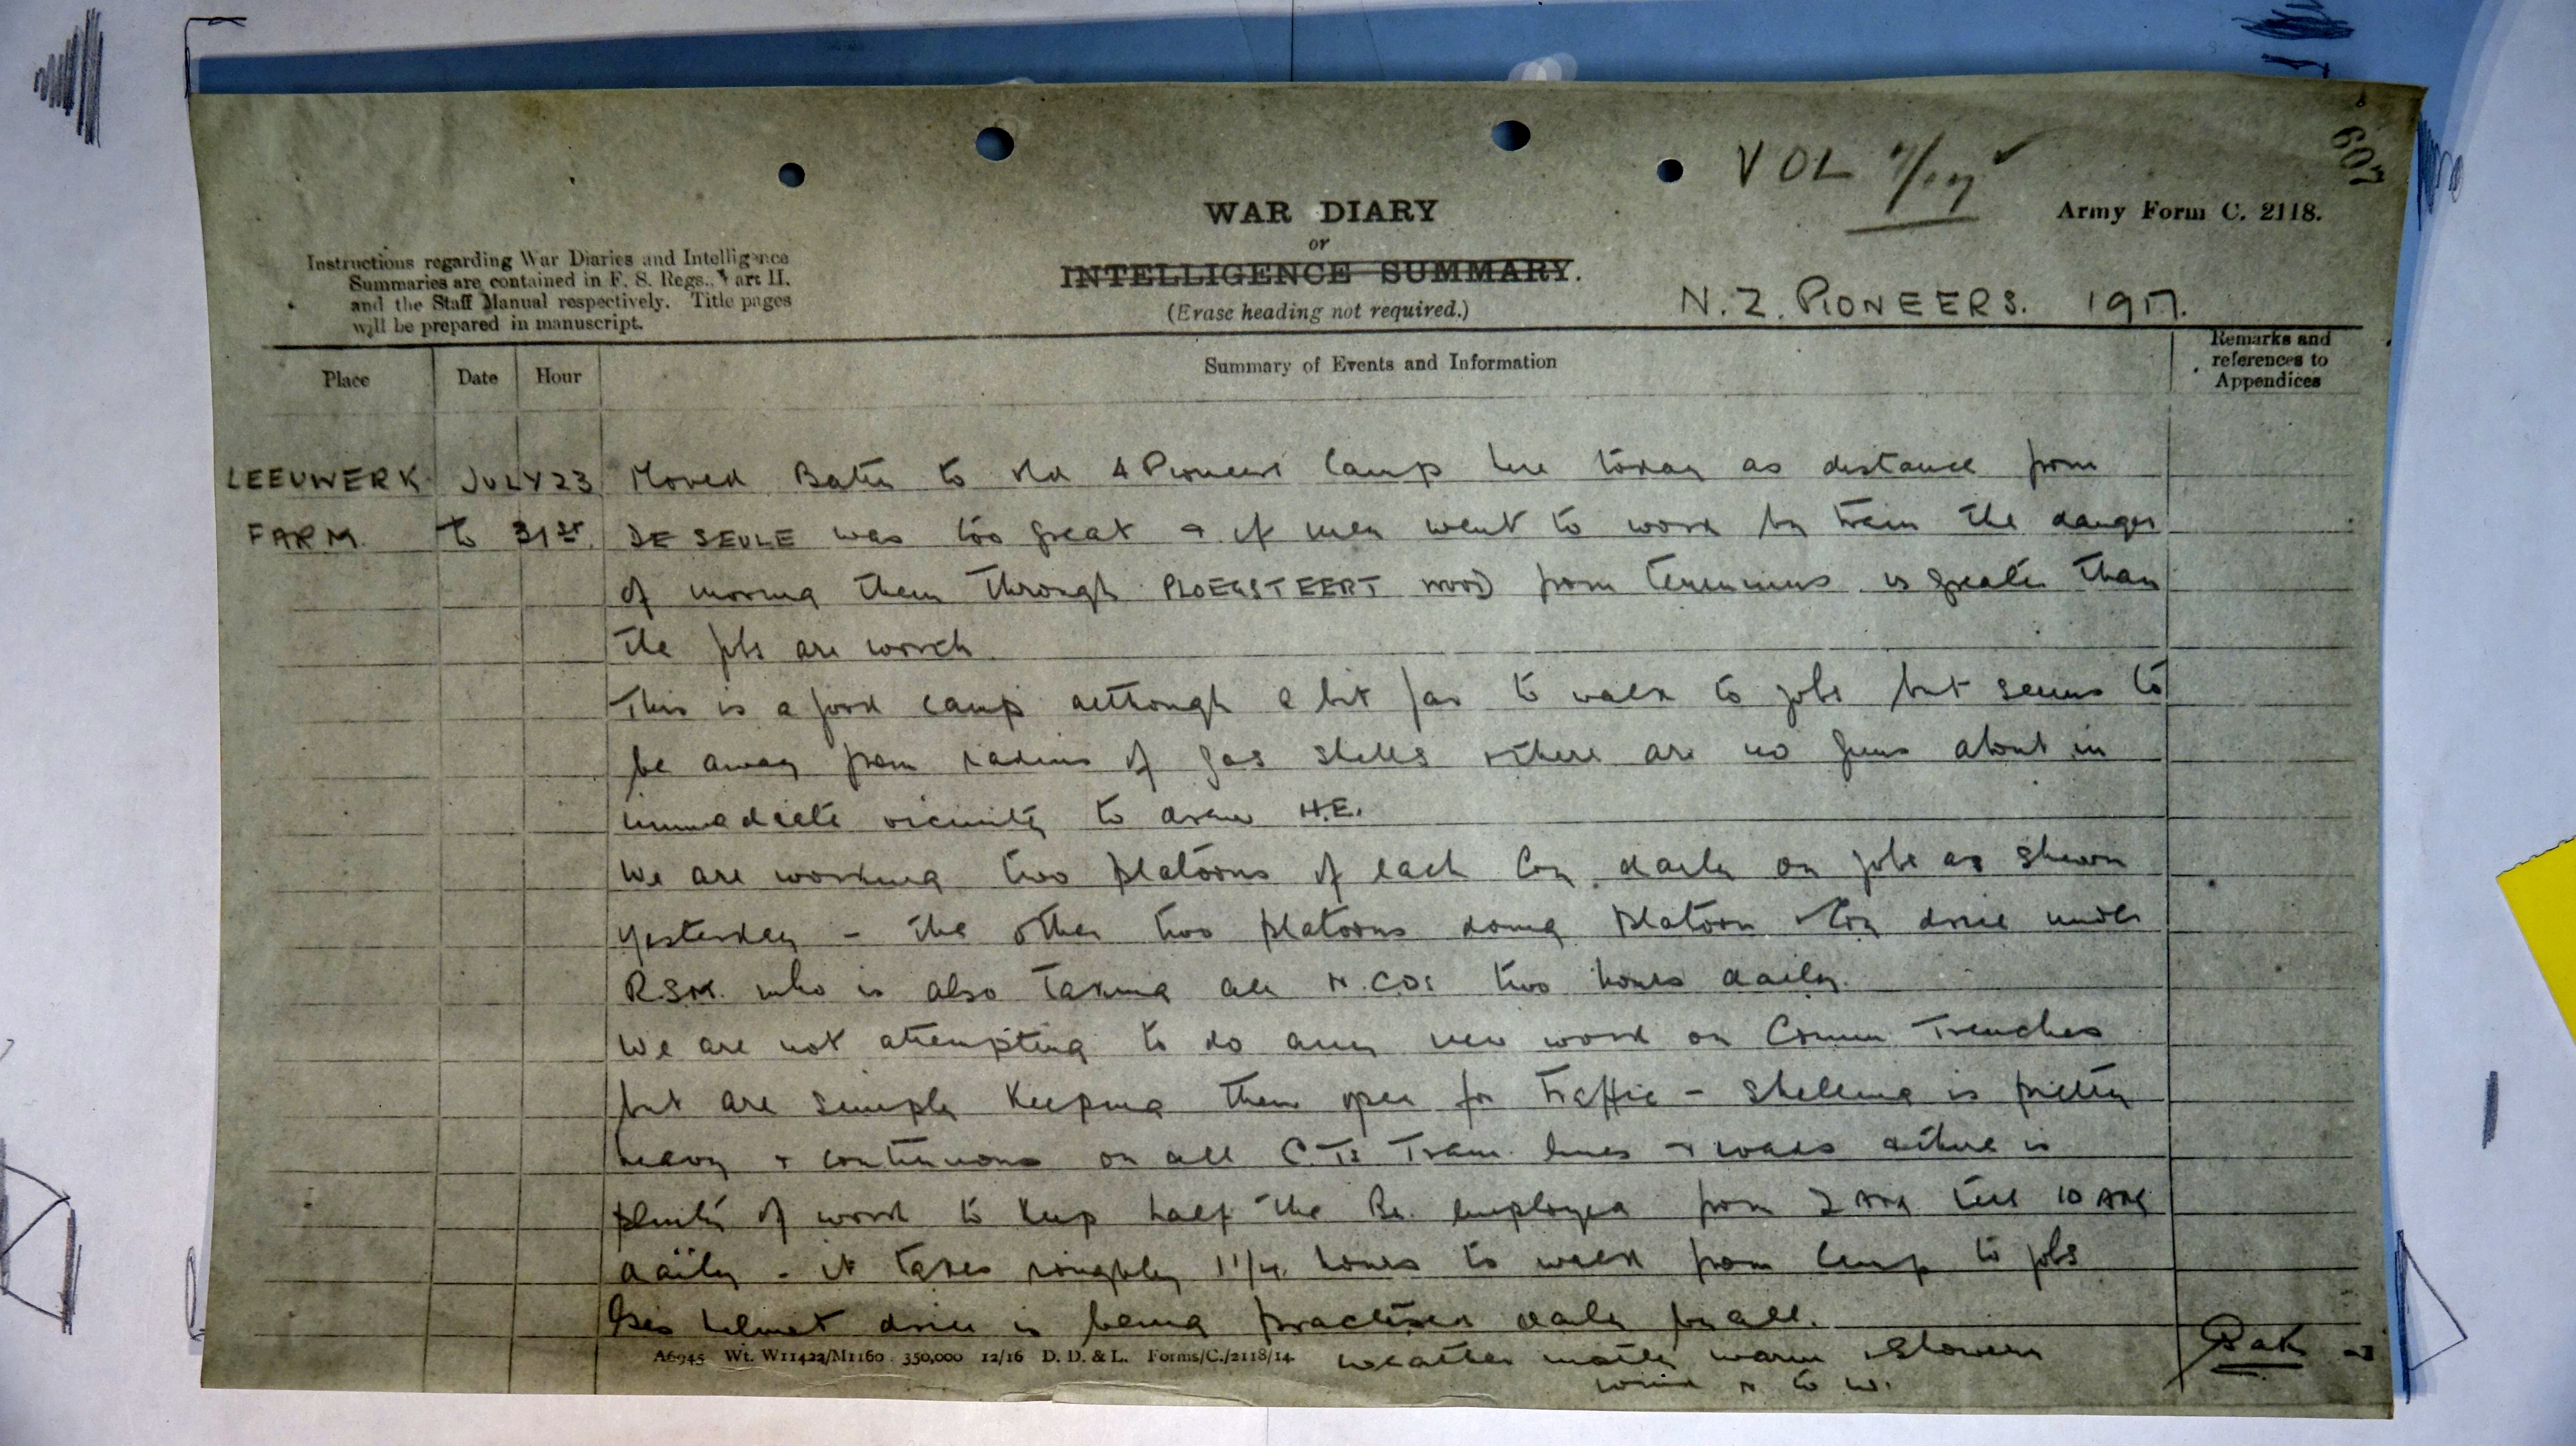 607
VOL 7/17
WAR DIARY
or
INTELLIGENCE SUMMARY.
(Erase heading not required.)
Army Form C. 2118.
Instructions regarding War Diaries and Intelligence
Summaries are contained in F. S. Regs., Part II.
and the Staff Manual respectively. Title pages
will be prepared in manuscript.
N.Z. PIONEERS. 1917.
Place
Date
Hour
Summary of Events and Information
Remarks and
references to
Appendices
LEEUWERK JULY 23 Moved Battn to old 4 Pioneers Camp here today as distance from
FARM. to 31st. DE SEULE was too great & if men went to work by tram the danger
of moving them through PLOEGSTEERT WOOD from terminus is greater than
the jobs are worth
This is a good camp although a bit far to walk to jobs but seems to
be away from radius of gas shells & there are no guns about in
immediate vicinity to draw H.E.
We are working two platoons of each Coy. daily on jobs as shewn
yesterday - the other two platoons doing platoon & Coy drill under
R.S.M. who is also taking all N.COs two hours daily.
We are not attempting to do any new work on Comm Trenches
but are simply keeping them open for traffic - shelling is pretty
heavy & continuous on all C.Ts Tram lines & roads & there is
plenty of work to keep half the Bn. employed from 2 AM till 10 AM
daily - it takes roughly 1 1/4 hours to walk from Camp to jobs
Gas helmet drill is being practised daily by all.
A6945 Wt. W11422/M1160 350,000 12/16 D. D. & L. Forms/C./2118/14.
Weather mostly warm & showery
wind N to W.